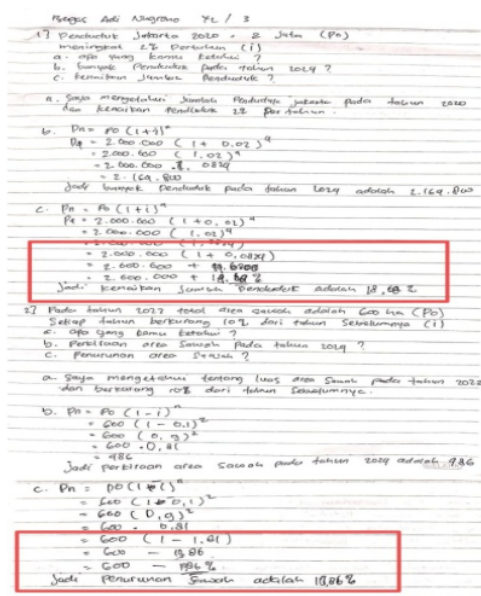 Bagas Adi Nugroho XL / 3
1] Penduduk Jakarta 2020 = 2 Juta (Po)
meningkat 2% Pertahun (i)
a. apa yang kamu ketahui ?
b. banyak Penduduk pada tahun 2024 ?
c. kenaikan Jumlah Penduduk ?
a. Saya mengetahui Jumlah Penduduk Jakarta pada tahun 2020
dan kenaikan Penduduk 2% Pertahun.
b. Pn = Po (1+i)ⁿ
P4 = 2.000.000 ( 1 + 0.02)⁴
= 2.000.000 ( 1,02)⁴
= 2.000.000 . 0824
= 2.164.800
Jadi banyak Penduduk pada tahun 2024 adalah 2.164.800
c. Pn = Po (1+i)ⁿ
P4 = 2.000.000 ( 1 + 0,02)⁴
= 2.000.000 ( 1,02)⁴
= 2.000.000 ( 1 + 0,0824)
= 2.000.000 +
= 2.000.000 +
Jadi kenaikan Jumlah Penduduk adalah %
2] Pada tahun 2022 total area sawah adalah 600 ha (Po)
Setiap tahun berkurang 10% dari tahun Sebelumnya (i)
a. apa yang kamu ketahui ?
b. Perkiraan area Sawah Pada tahun 2024 ?
c. Penurunan area Sawah ?
a. Saya mengetahui tentang luas area Sawah pada tahun 2022
dan berkurang 10% dari tahun Sebelumnya.
b. Pn = Po (1-i)ⁿ
= 600 (1 - 0.1)²
= 600 (0,9)²
= 600 . 0,81
= 486
Jadi Perkiraan area sawah pada tahun 2024 adalah 486
c. Pn = Po (1-i)ⁿ
= 600 (1-0,1)²
= 600 (0,9)²
= 600 . 0.81
= 600 (1 - 1,81)
= 600 -
= 600 -
Jadi Penurunan Sawah adalah %